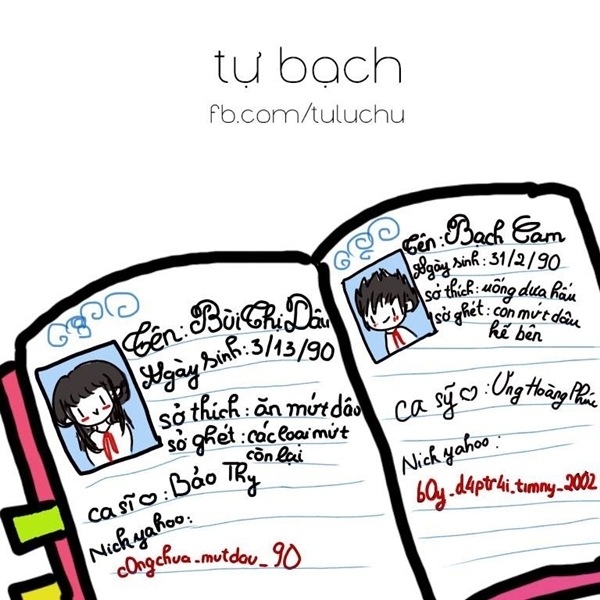 tự bạch
fb.com/tuluchu
Tên: Bùi Thị Dâu
Ngày sinh: 3/13/90
sở thích: ăn mứt dâu
sở ghét: các loại mứt
còn lại
ca sĩ ♡: Bảo Thy
Nick yahoo:
c0ngchua_mutdau_90
Tên: Bạch Cam
Ngày sinh: 31/2/90
sở thích: uống dưa hấu
sở ghét: con mứt dâu
kế bên
ca sỹ ♡: Ưng Hoàng Phúc
Nick yahoo:
b0y_d4ptr4i_timny_2002